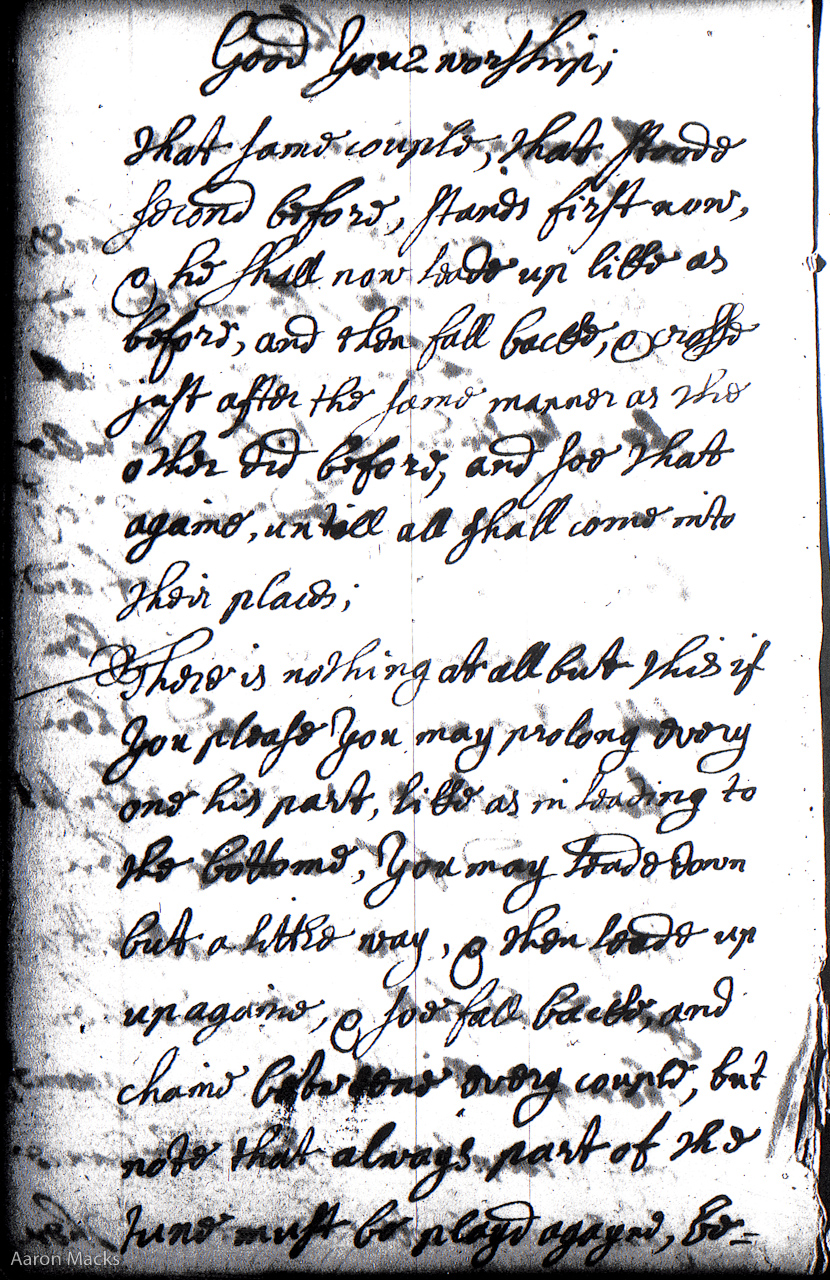 Good Your worship;
that same couple, that stoode
second before, stands first now,
& he shall now leade up like as
before, and then fall backe, & crosse
just after the same manner as the
other did before, and soe that
againe, untill all shall come into
their places;
There is nothing at all but this if
You please You may prolong every
one his part, like as in leading to
the bottome, You may leade down
but a little way, & then leade up
up againe, & soe fall backe, and
chaine betweene every couple, but
note that always part of the
tune must be playd agayne, be=
Aaron Macks